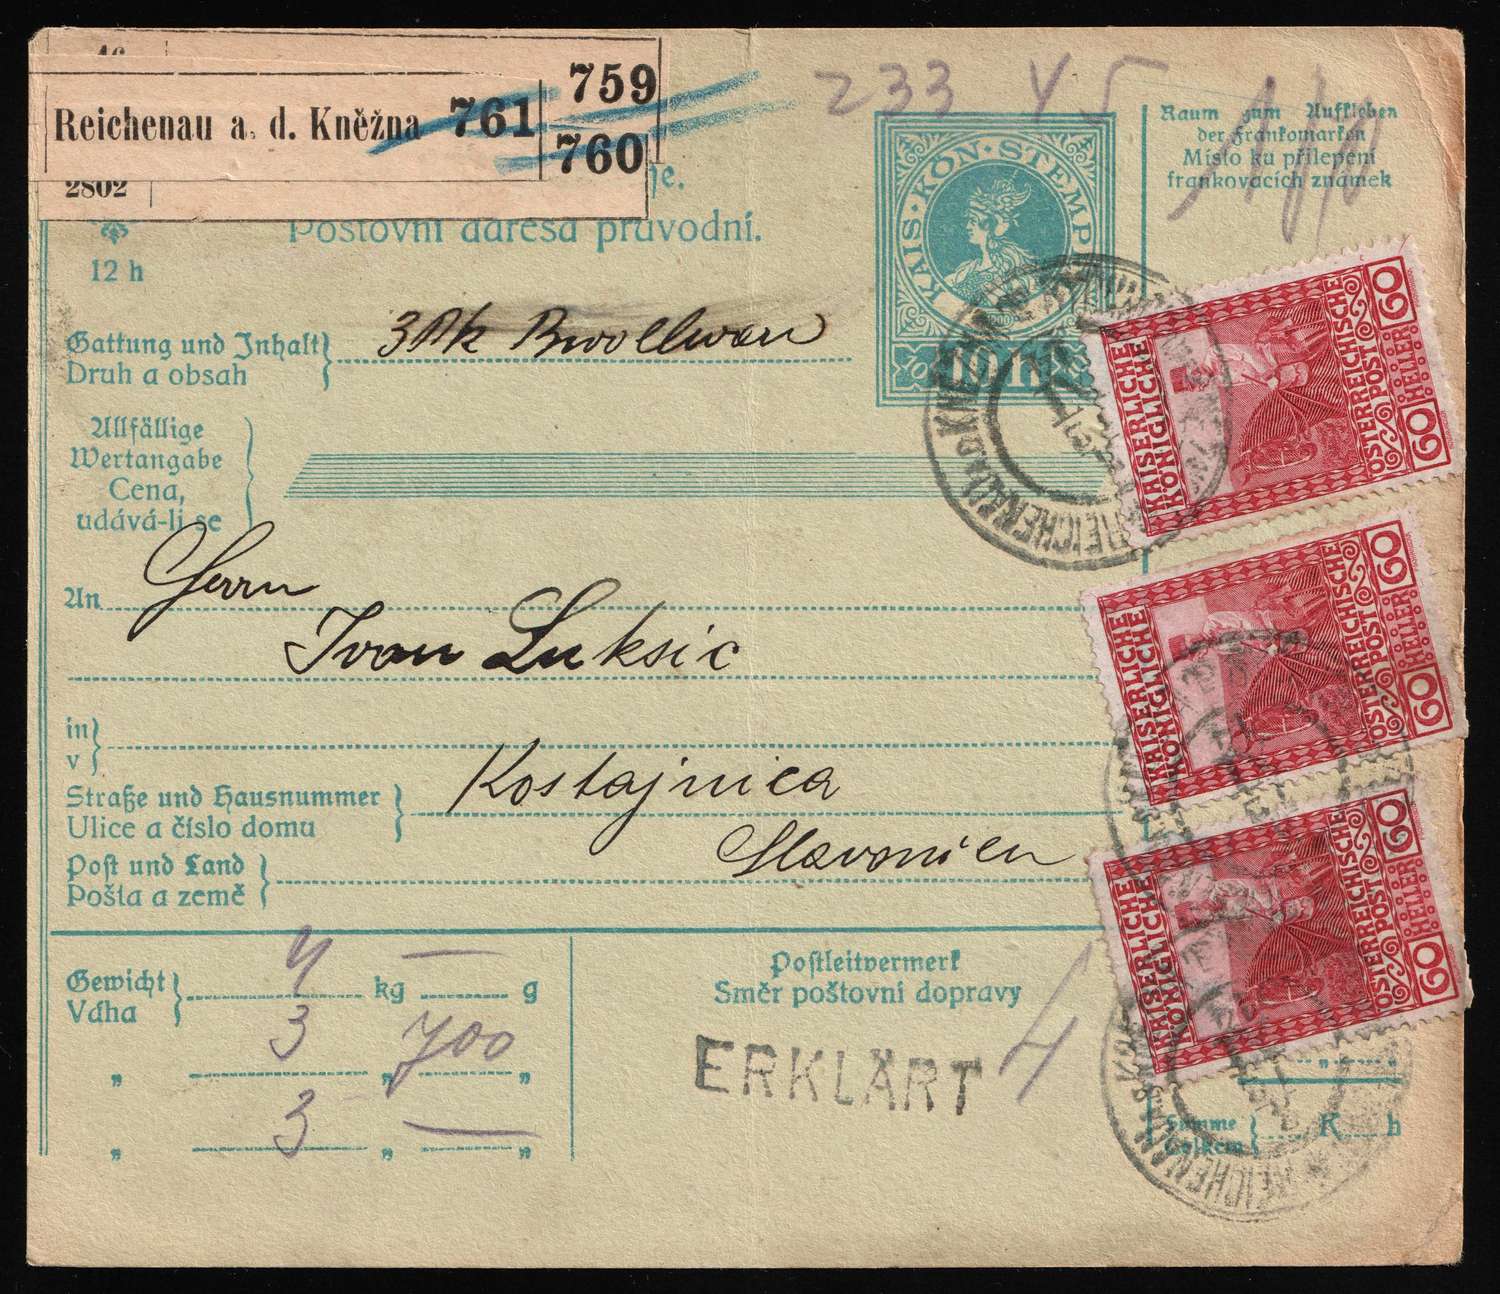 46
Reichenau a. d. Kněžna 761
759
760
2802
Postovní adresa průvodní.
12 h
233 45
KAIS·KÖN·STEMPEL
10 h
Raum zum Aufkleben
der Frankomarken
Místo ku přilepení
frankovacích známek
Gattung und Inhalt
Druh a obsah
3 Pk Bwollwaren
Allfällige
Wertangabe
Cena,
udává-li se
An Herrn
Ivan Luksic
in
v
Straße und Hausnummer
Ulice a číslo domu
Kostajnica
Post und Land
Pošta a země
Slavonien
Gewicht
Váha
4 kg — g
3 „ 700 „
„ 3 „ — „
Postleitvermerk
Směr poštovní dopravy
ERKLÄRT
4
KAISERLICHE
KÖNIGLICHE
ÖSTERREICHISCHE
POST
60 HELLER 60
KAISERLICHE
KÖNIGLICHE
ÖSTERREICHISCHE
POST
60 HELLER 60
KAISERLICHE
KÖNIGLICHE
ÖSTERREICHISCHE
POST
60 HELLER 60
Summe
Celkem
K h